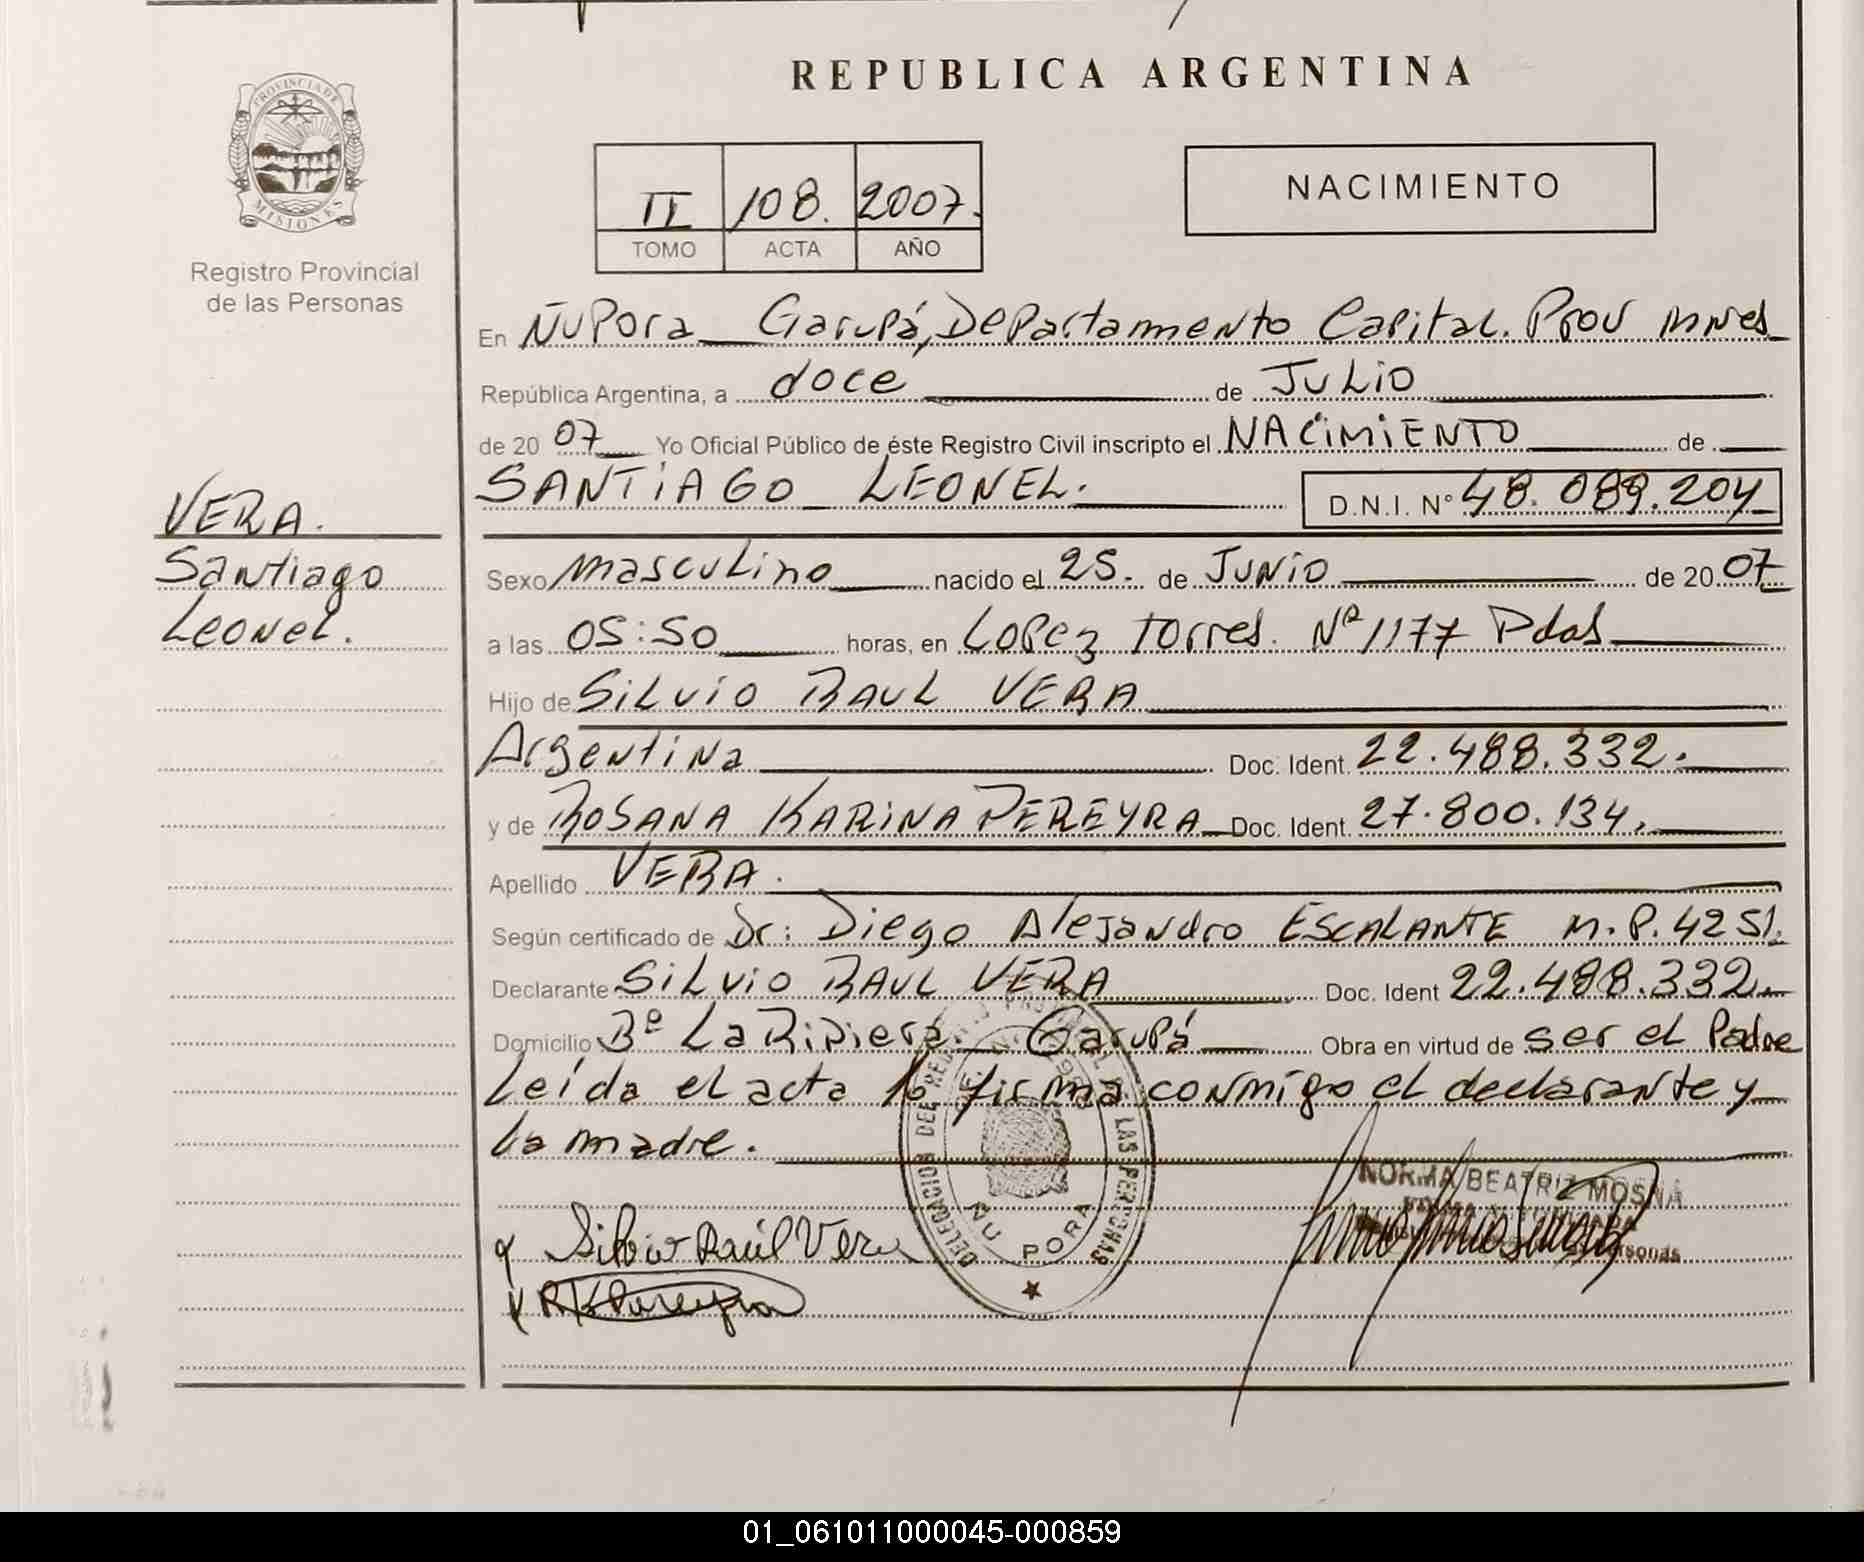 REPUBLICA ARGENTINA
PROVINCIA DE
MISIONES
Registro Provincial
de las Personas
II 108. 2007.
TOMO ACTA AÑO
NACIMIENTO
En ÑuPora Garupá, Departamento Capital. Prov mnes
República Argentina, a doce de Julio
de 2007 Yo Oficial Público de éste Registro Civil inscripto el NACIMIENTO de
SANTIAGO LEONEL.
D.N.I. N° 48.089.204
VERA.
Santiago
Leonel.
Sexo masculino nacido el 25. de Junio de 2007
a las 05:50 horas, en Lopez Torres. Nº 1177 Pdas
Hijo de SILVIO RAUL VERA
Argentina Doc. Ident. 22.488.332.
y de ROSANA KARINA PEREYRA Doc. Ident. 27.800.134.
Apellido VERA.
Según certificado de Dr: Diego Alejandro ESCALANTE M.P. 4251.
Declarante SILVIO RAUL VERA Doc. Ident 22.488.332.
Domicilio Bº La Ribiera. Garupá Obra en virtud de ser el Padre
Leída el acta la firma conmigo el declarante y
la madre.
DELEGACION DEL REGISTRO PROVINCIAL DE LAS PERSONAS
ÑU PORA
NORMA BEATRIZ MOSNA
Silvio Raúl Vera
RKPereyra
01_061011000045-000859